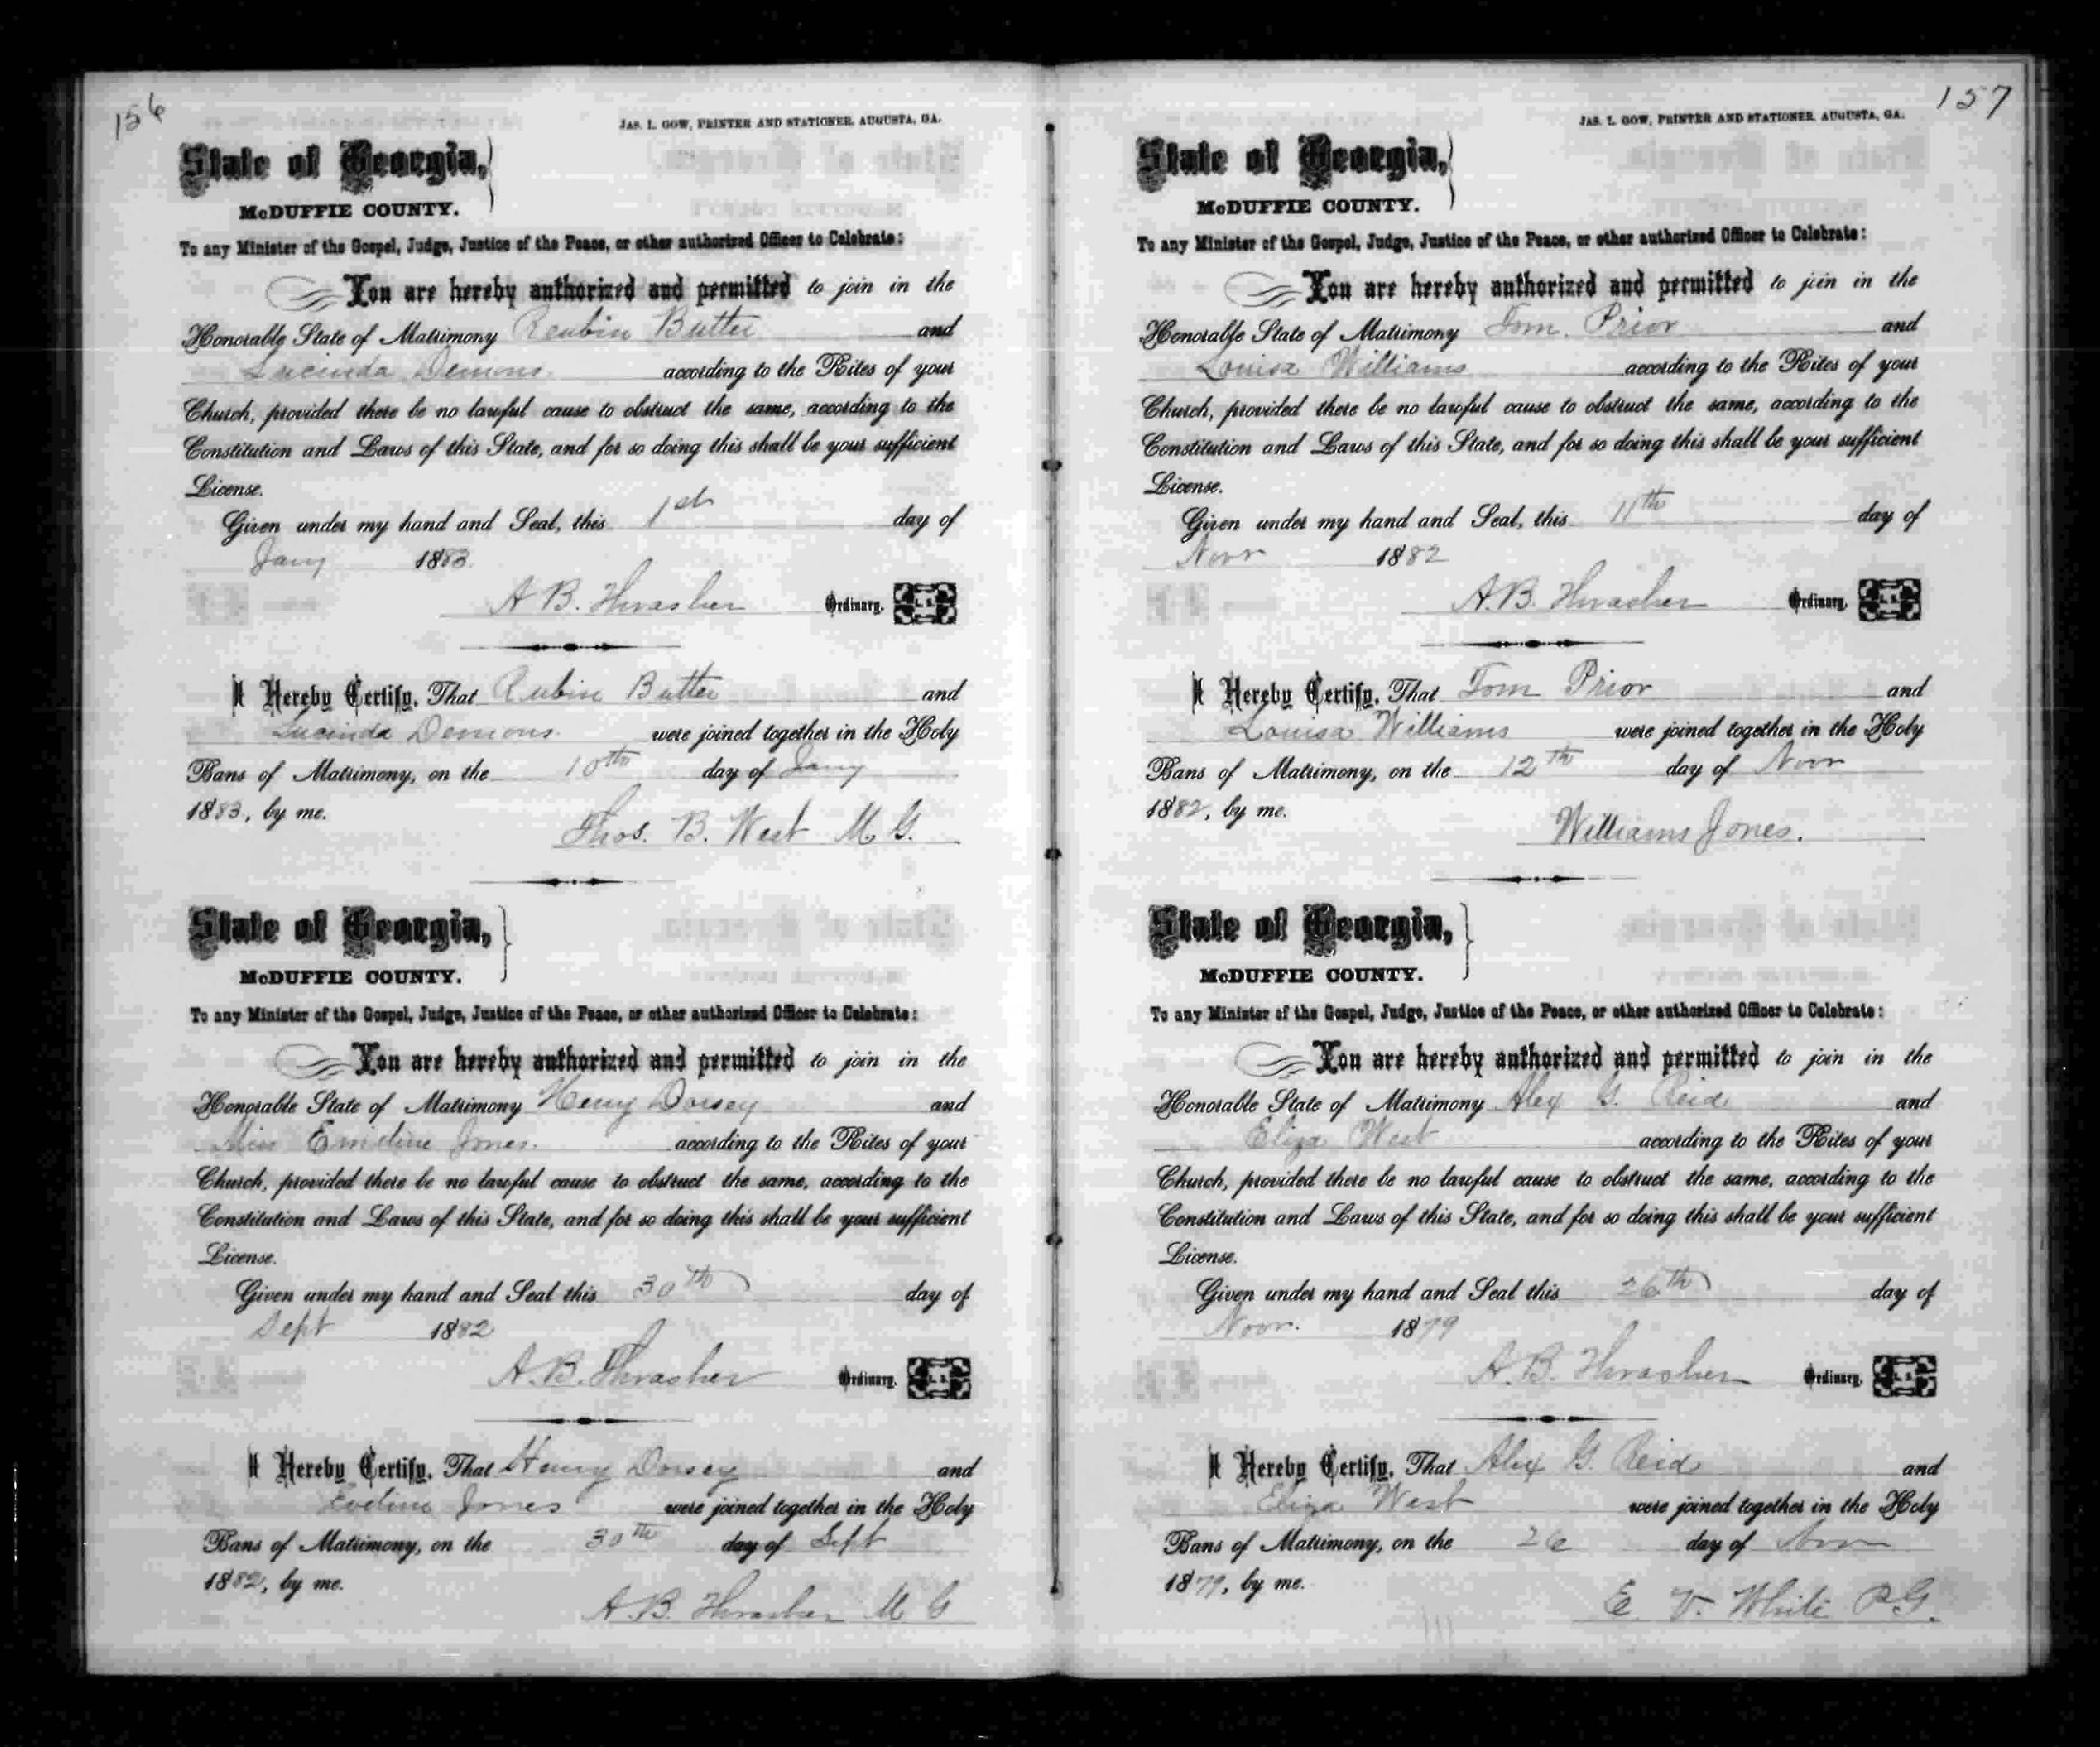 156
JAS. L. GOW, PRINTER AND STATIONER, AUGUSTA, GA.
State of Georgia,
McDUFFIE COUNTY.
To any Minister of the Gospel, Judge, Justice of the Peace, or other authorized Officer to Celebrate:
You are hereby authorized and permitted to join in the
Honorable State of Matrimony Reubin Butler and
Lucinda Demons according to the Rites of your
Church, provided there be no lawful cause to obstruct the same, according to the
Constitution and Laws of this State, and for so doing this shall be your sufficient
License.
Given under my hand and Seal, this 1st day of
Jany 1883
A B. Thrasher Ordinary. L. S.
I Hereby Certify, That Rubin Butler and
Lucinda Demons were joined together in the Holy
Bans of Matrimony, on the 10th day of Jany
1883, by me.
Thos. B. West M. G.
State of Georgia,
McDUFFIE COUNTY.
To any Minister of the Gospel, Judge, Justice of the Peace, or other authorized Officer to Celebrate:
You are hereby authorized and permitted to join in the
Honorable State of Matrimony Henry Dorsey and
Miss Emeline Jones. according to the Rites of your
Church, provided there be no lawful cause to obstruct the same, according to the
Constitution and Laws of this State, and for so doing this shall be your sufficient
License.
Given under my hand and Seal this 30th day of
Sept 1882
A. B. Thrasher Ordinary. L. S.
I Hereby Certify, That Henry Dorsey and
Eveline Jones were joined together in the Holy
Bans of Matrimony, on the 30th day of Sept
1882, by me.
A. B. Thrasher M G
157
JAS. L. GOW, PRINTER AND STATIONER, AUGUSTA, GA.
State of Georgia,
McDUFFIE COUNTY.
To any Minister of the Gospel, Judge, Justice of the Peace, or other authorized Officer to Celebrate:
You are hereby authorized and permitted to join in the
Honorable State of Matrimony Tom. Prior and
Louisa Williams according to the Rites of your
Church, provided there be no lawful cause to obstruct the same, according to the
Constitution and Laws of this State, and for so doing this shall be your sufficient
License.
Given under my hand and Seal, this 11th day of
Novr 1882
A. B. Thrasher Ordinary. L. S.
I Hereby Certify, That Tom Prior and
Louisa Williams were joined together in the Holy
Bans of Matrimony, on the 12th day of Novr
1882, by me.
Williams Jones.
State of Georgia,
McDUFFIE COUNTY.
To any Minister of the Gospel, Judge, Justice of the Peace, or other authorized Officer to Celebrate:
You are hereby authorized and permitted to join in the
Honorable State of Matrimony Alex G. Reid and
Eliza West according to the Rites of your
Church, provided there be no lawful cause to obstruct the same, according to the
Constitution and Laws of this State, and for so doing this shall be your sufficient
License.
Given under my hand and Seal this 26th day of
Novr. 1879
A. B. Thrasher Ordinary. L. S.
I Hereby Certify, That Alex G. Reid and
Eliza West were joined together in the Holy
Bans of Matrimony, on the 26 day of Novr
1879, by me.
E. V. White P. G.